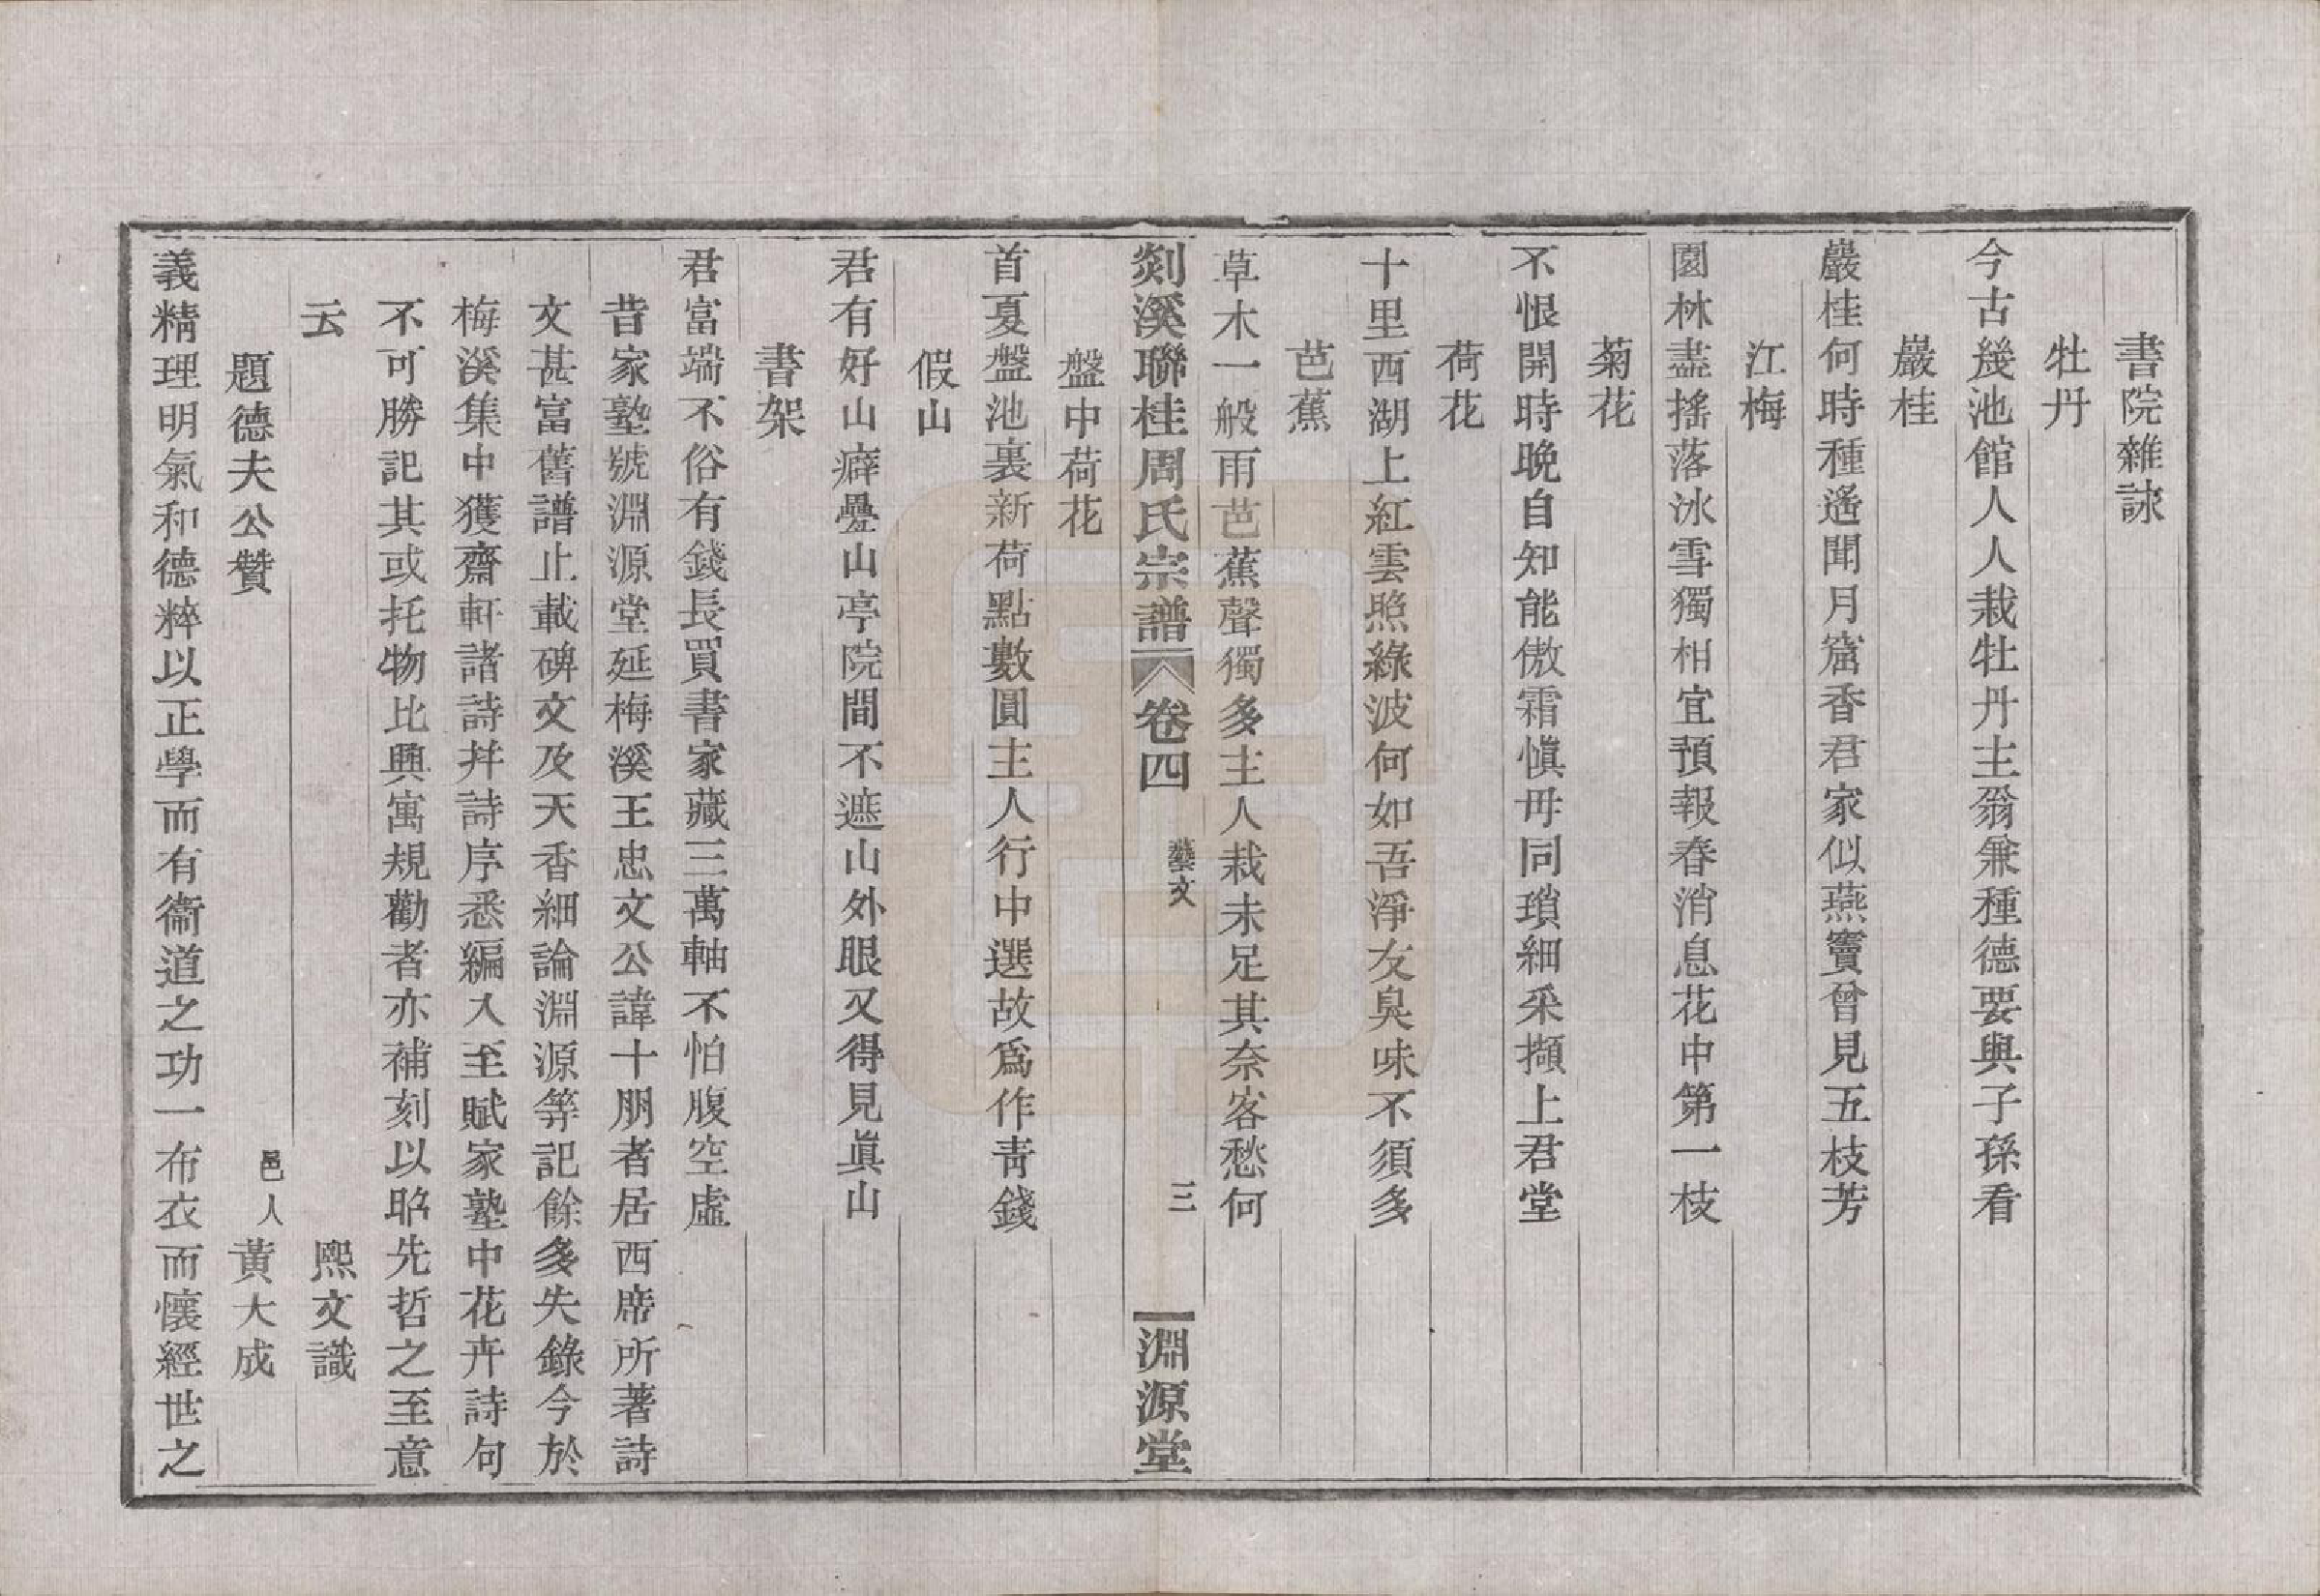 書院雜詠
牡丹
今古幾池館人人栽牡丹主翁兼種德要與子孫看
巖桂
巖桂何時種遙聞月窟香君家似燕竇曾見五枝芳
江梅
園林盡搖落冰雪獨相宜預報春消息花中第一枝
菊花
不恨開時晚自知能傲霜慎毋同瑣細采擷上君堂
荷花
十里西湖上紅雲照綠波何如吾淨友臭味不須多
芭蕉
草木一般雨芭蕉聲獨多主人栽未足其奈客愁何
剡溪聯桂周氏宗譜 卷四 藝文 三 淵源堂
盤中荷花
首夏盤池裏新荷點數圓主人行中選故爲作青錢
假山
君有好山癖疊山亭院間不遮山外眼又得見眞山
書架
君富端不俗有錢長買書家藏三萬軸不怕腹空虛
昔家塾號淵源堂延梅溪王忠文公諱十朋者居西席所著詩
文甚富舊譜止載碑文及天香細論淵源等記餘多失錄今於
梅溪集中獲齋軒諸詩并詩序悉編入至賦家塾中花卉詩句
不可勝記其或托物比興寓規勸者亦補刻以昭先哲之至意
云 熙文識
題德夫公贊 邑人黃大成
義精理明氣和德粹以正學而有衞道之功一布衣而懷經世之